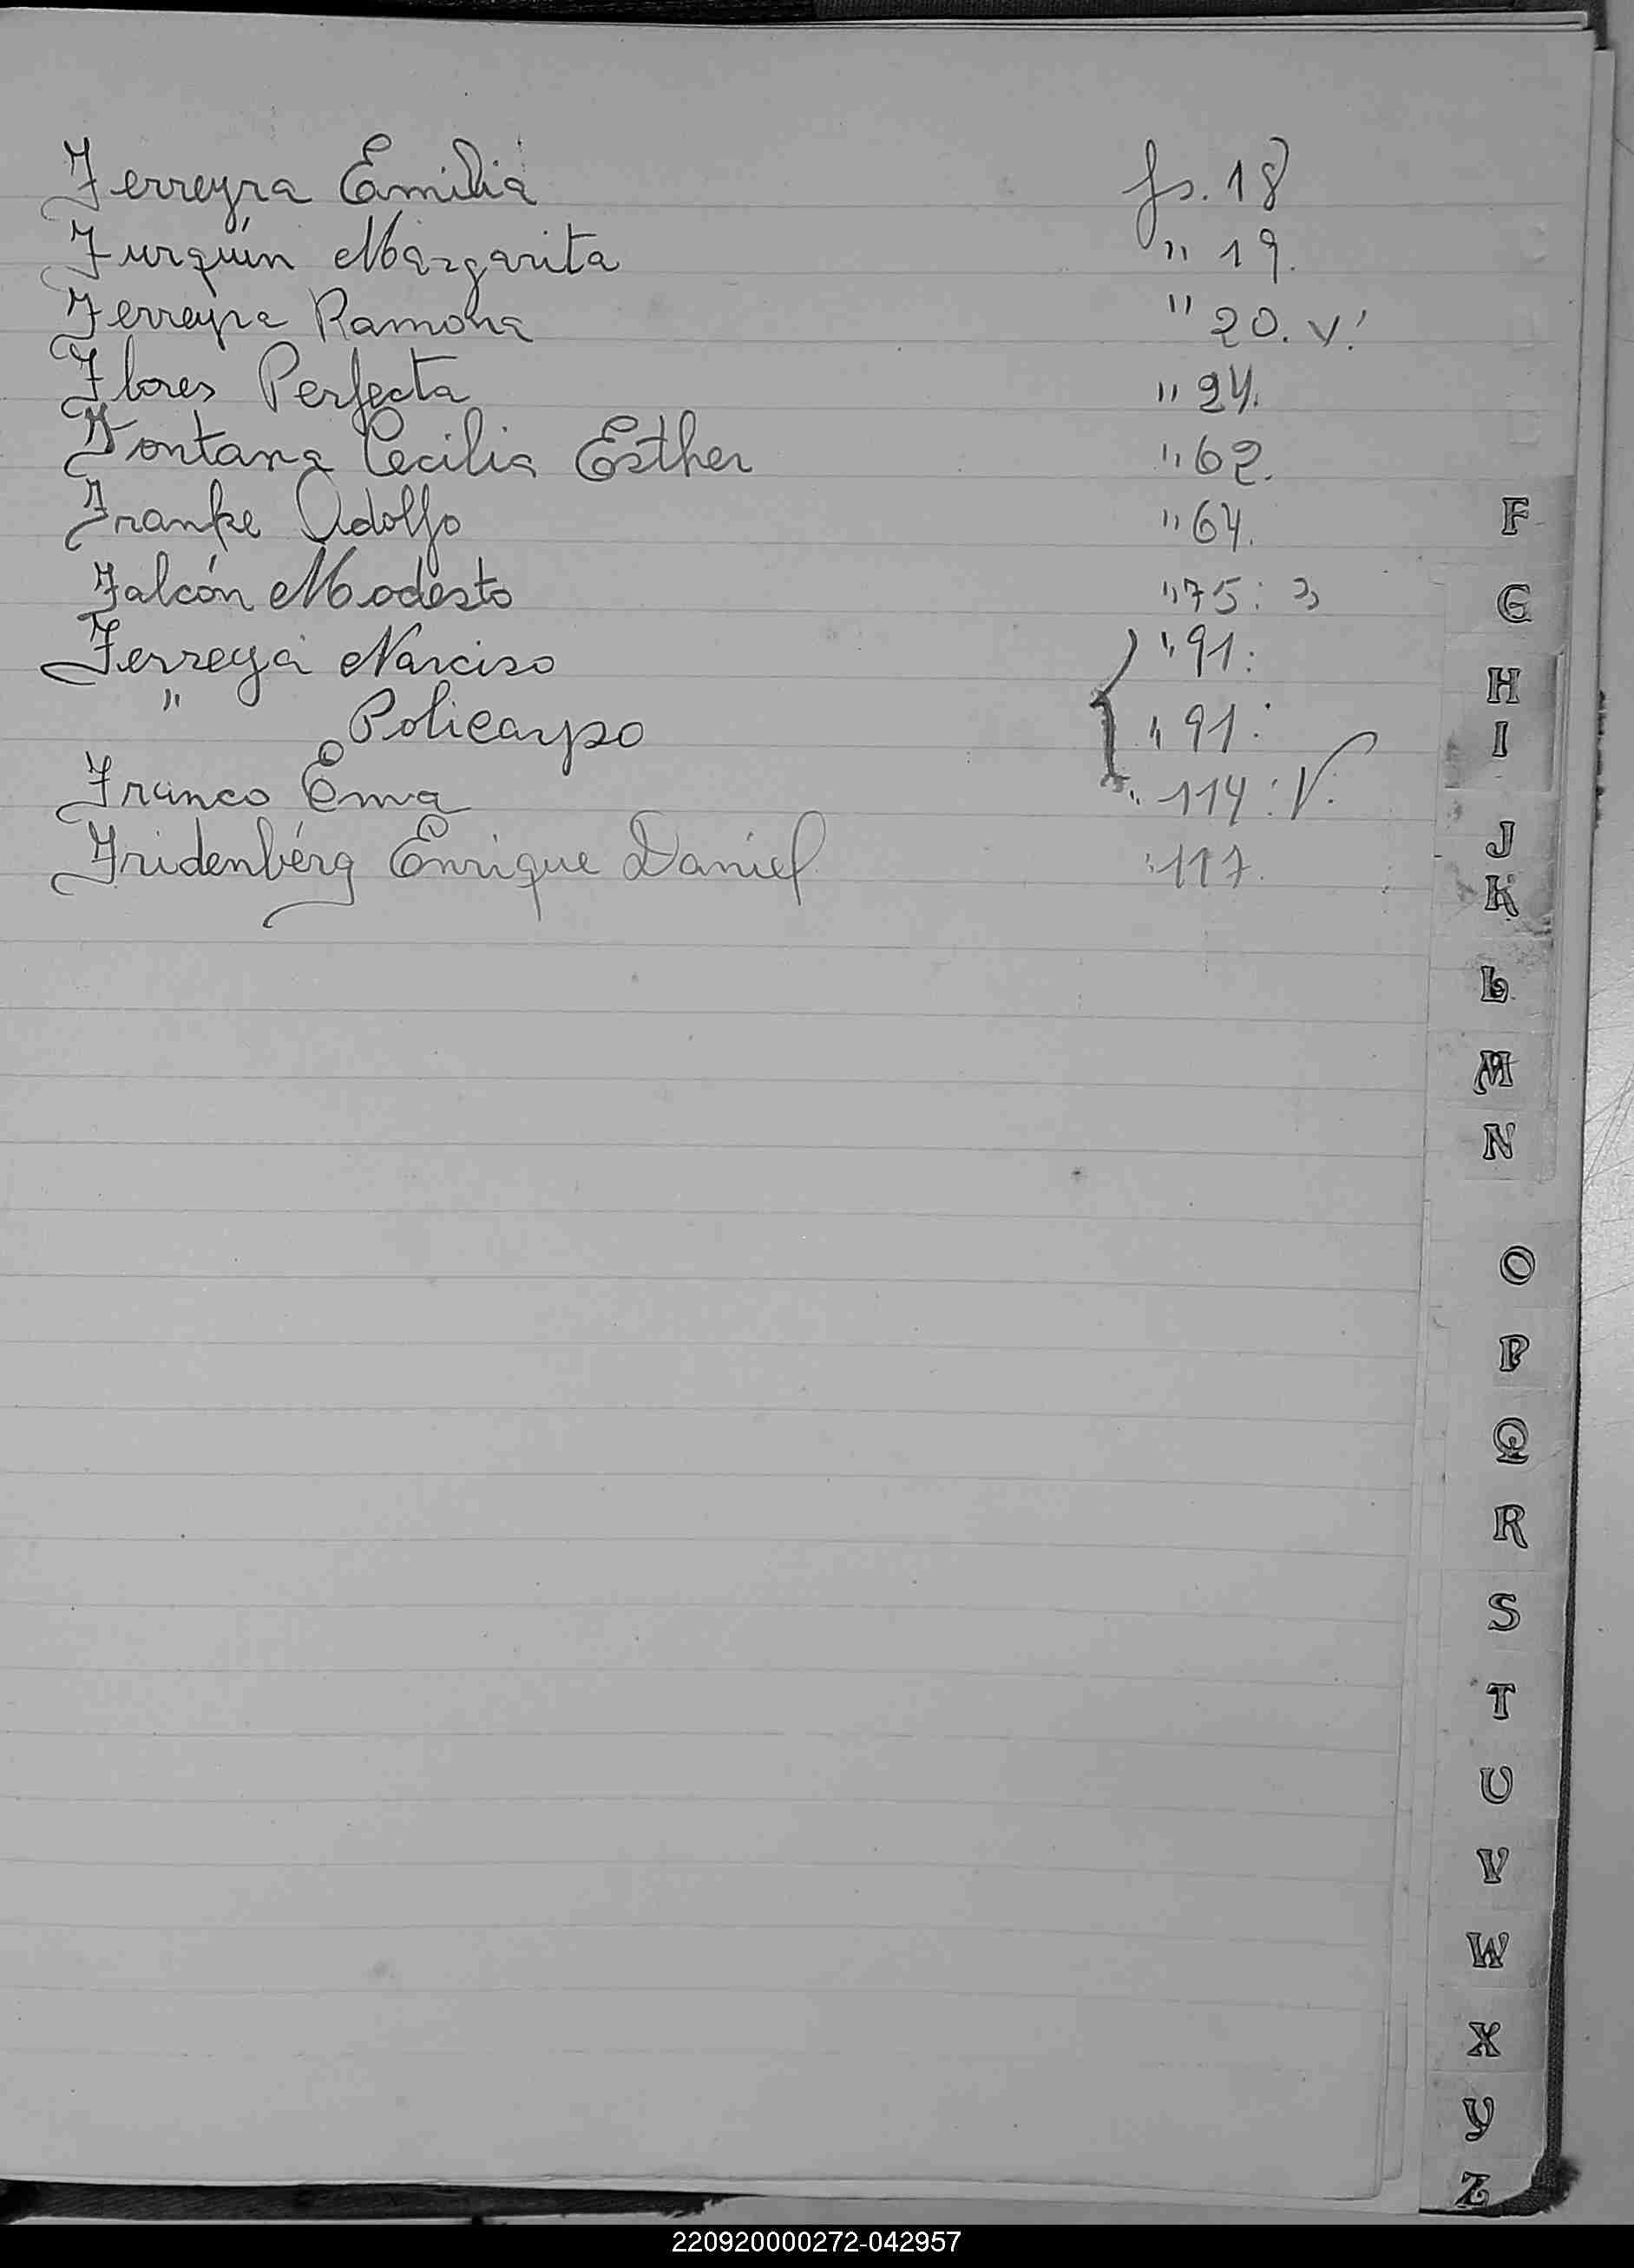 Ferreyra Emilia fs. 18
Furquín Margarita " 19.
Ferreyra Ramona " 20. v.
Flores Perfecta " 24.
Fontana Cecilia Esther " 62.
Franke Adolfo " 64.
Falcón Modesto " 75:
Ferreya Narciso " 91:
" Policarpo " 91:
Franco Ema " 114: V.
Fridenbérg Enrique Daniel " 117.
F
G
H
I
J
K
L
M
N
O
P
Q
R
S
T
U
V
W
X
Y
Z
220920000272-042957